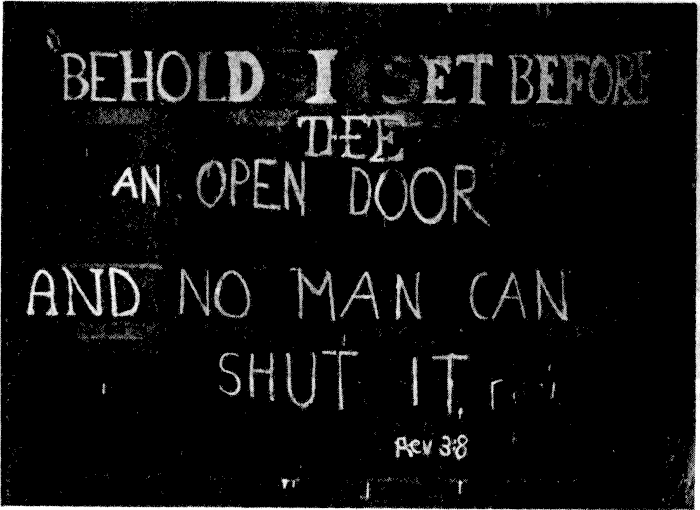 "BEHOLD I SET BEFORE
THEE
AN OPEN DOOR
AND NO MAN CAN
SHUT IT.
Rev 3:8